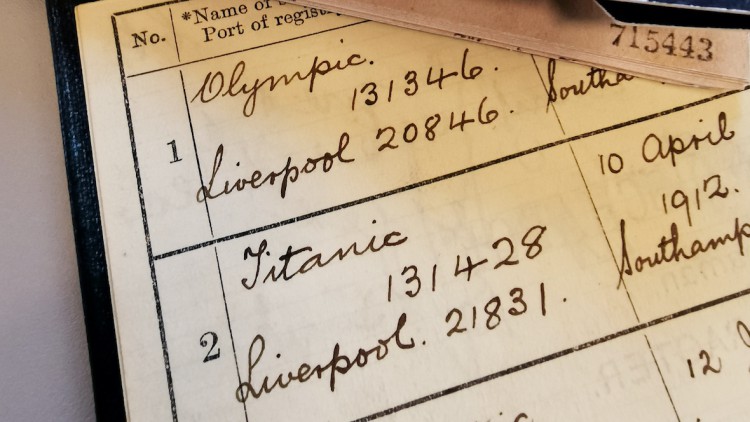 No.
*Name of
Port of regist
715443
1
Olympic.
131346.
Liverpool 20846.
Southa
10 April
1912.
Southamp
2
Titanic
131428
Liverpool. 21831.
12